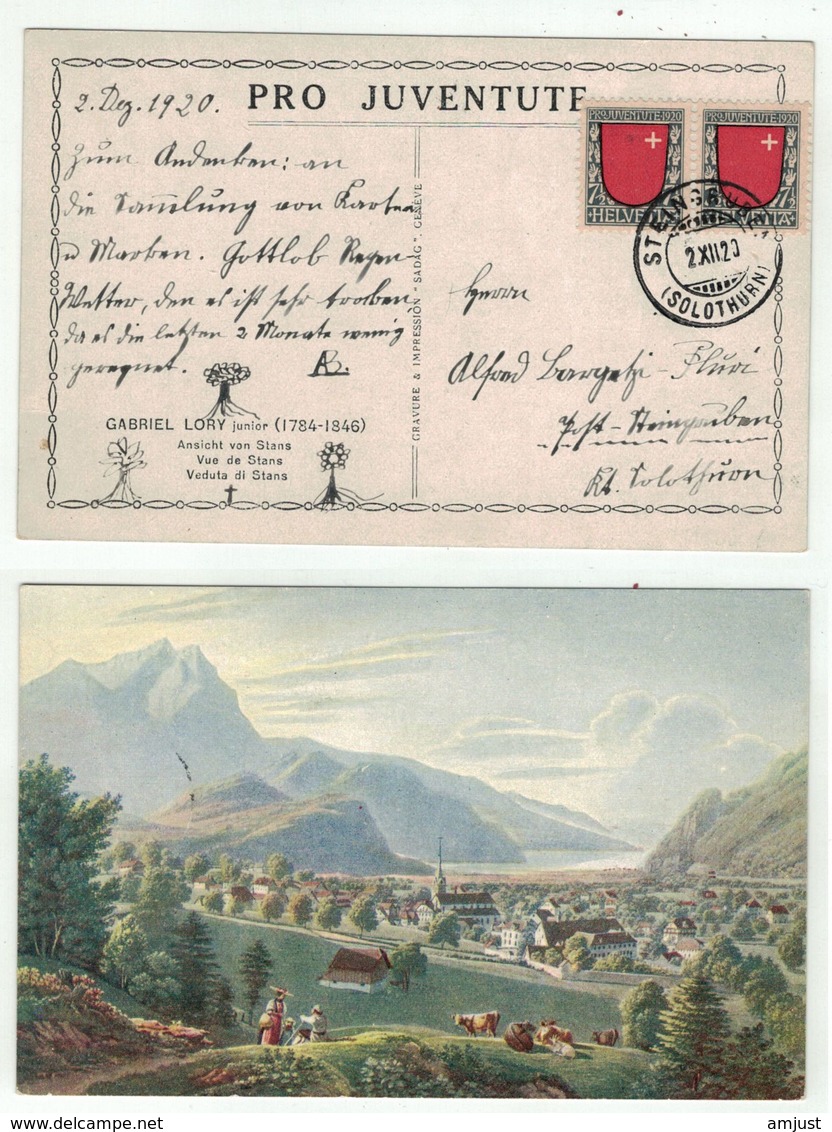 2. Dez. 1920.
PRO JUVENTUTE
Zum Andenken: an
die Sammlung von Karten
u Marken. Gottlob Regen-
Wetter, den es ist sehr trocken,
da es die letzten 2 Monate wenig
geregnet. AB.
GABRIEL LORY junior (1784-1846)
Ansicht von Stans
Vue de Stans
Veduta di Stans
GRAVURE & IMPRESSION "SADAG", GENÈVE
PRO JUVENTUTE·1920
PRO JUVENTUTE·1920
7½
7½
HELVETIA
STEINGRUBEN
2.XII.20
(SOLOTHURN)
Herrn
Alfred Bargetzi-Fluri
Post-Steingruben
Kt. Solothurn
amjust